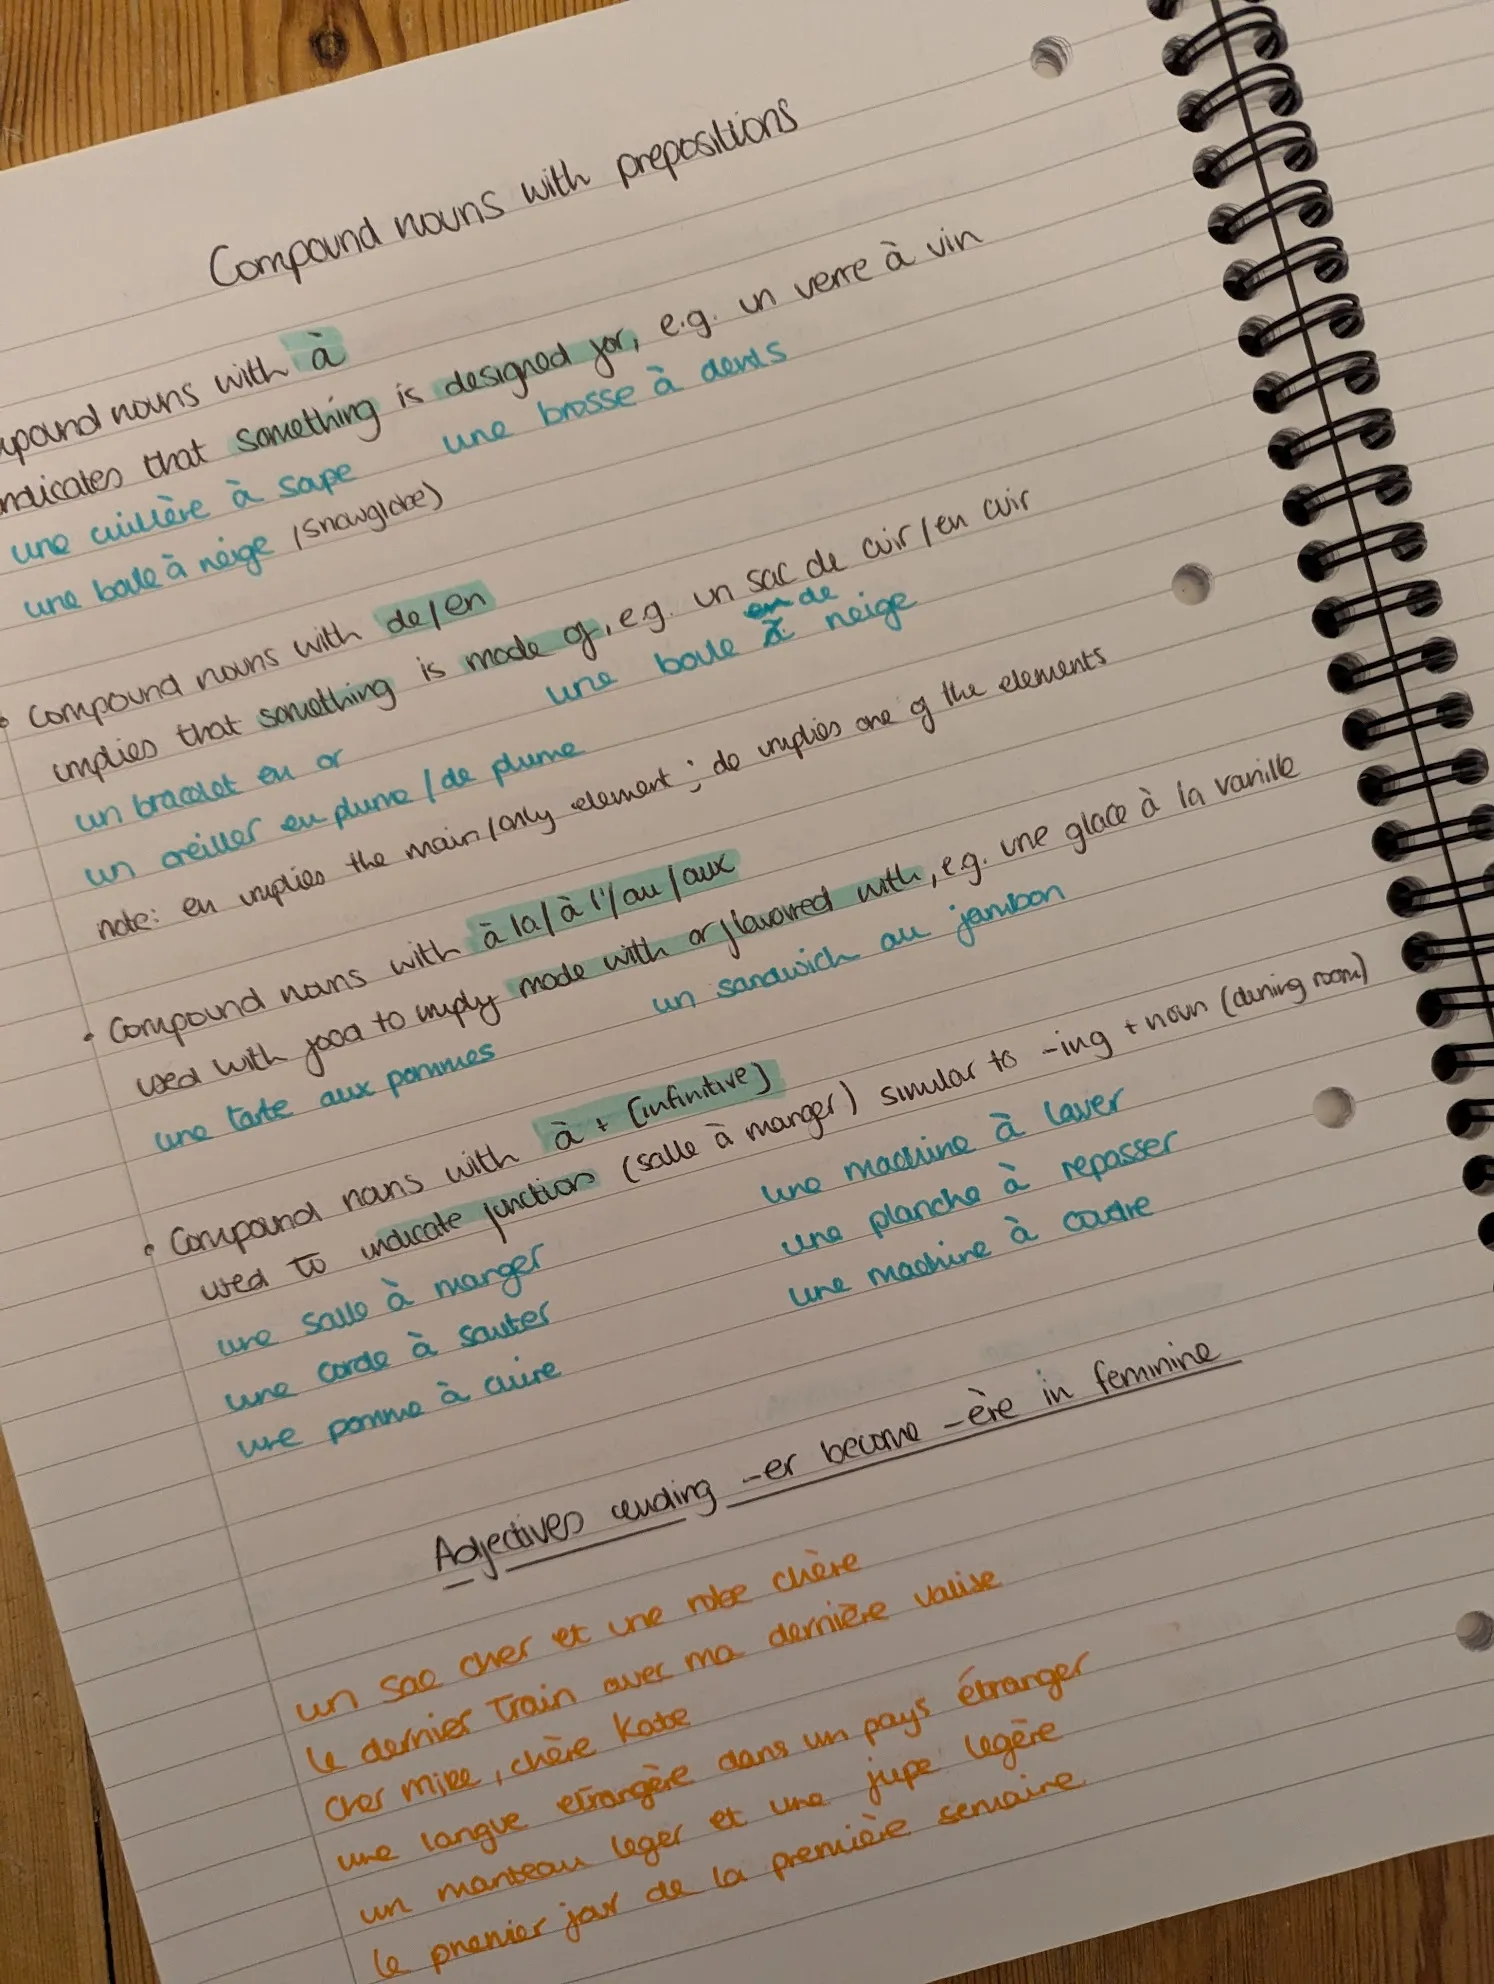 Compound nouns with prepositions
mpound nouns with à
ndicates that something is designed for, e.g. un verre à vin
une cuillère à sope une brosse à dents
une boule à neige (snowglobe)
• Compound nouns with de/en
implies that something is made of, e.g. un sac de cuir/en cuir
en de
un bracelet en or une boule à neige
un oreiller en plume/de plume
note: en implies the main/only element; de implies one of the elements
• Compound nouns with à la/à l'/au/aux
used with food to imply made with or flavoured with, e.g. une glace à la vanille
une tarte aux pommes un sandwich au jambon
• Compound nouns with à + [infinitive]
used to indicate function (salle à manger) similar to -ing + noun (dining room)
une salle à manger une machine à laver
une corde à sauter une planche à repasser
une pomme à cuire une machine à coudre
Adjectives ending -er become -ère in feminine
un sac cher et une robe chère
le dernier train avec ma dernière valise
cher Mike, chère Kate
une langue etrangère dans un pays étranger
un manteau leger et une jupe legère
le premier jour de la première semaine